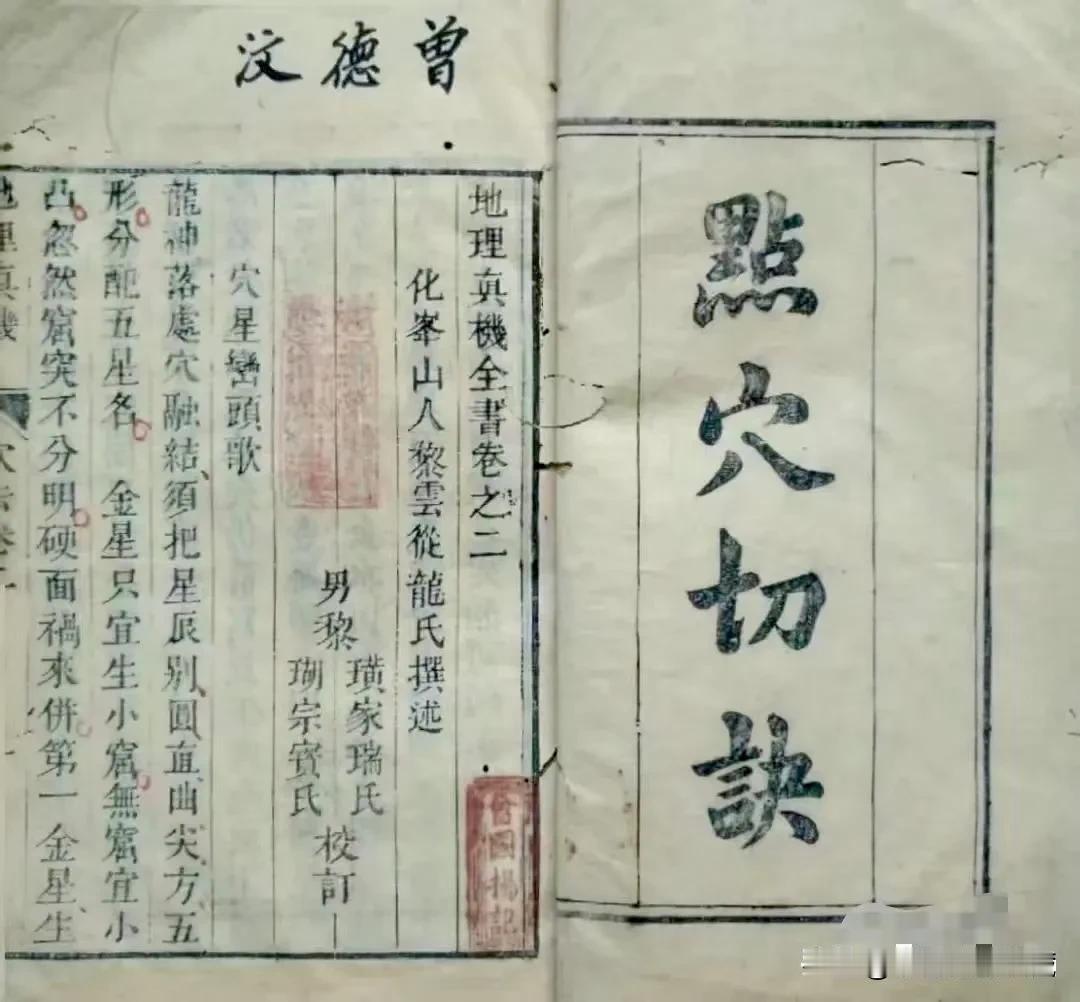 點穴切訣
曾德汶
地理真機全書卷之二
化峯山人黎雲從龍氏撰述
男黎
璜家瑞氏
瑚宗寳氏
校訂
穴星巒頭歌
龍神落處穴融結須把星辰别圓直曲尖方五
形分配五星名金星只宜生小窟無窟宜小
凸忽然窟突不分明硬面禍來併第一金星生
地理真機
曾國揚記